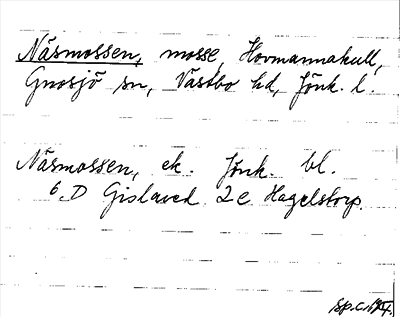 Näsmossen, mosse, Hovmannakull,
Gnosjö sn, Västbo hd, Jönk. l.
Näsmossen, ek. Jönk. bl.
6 D Gislaved 2 e Hagelstorp.